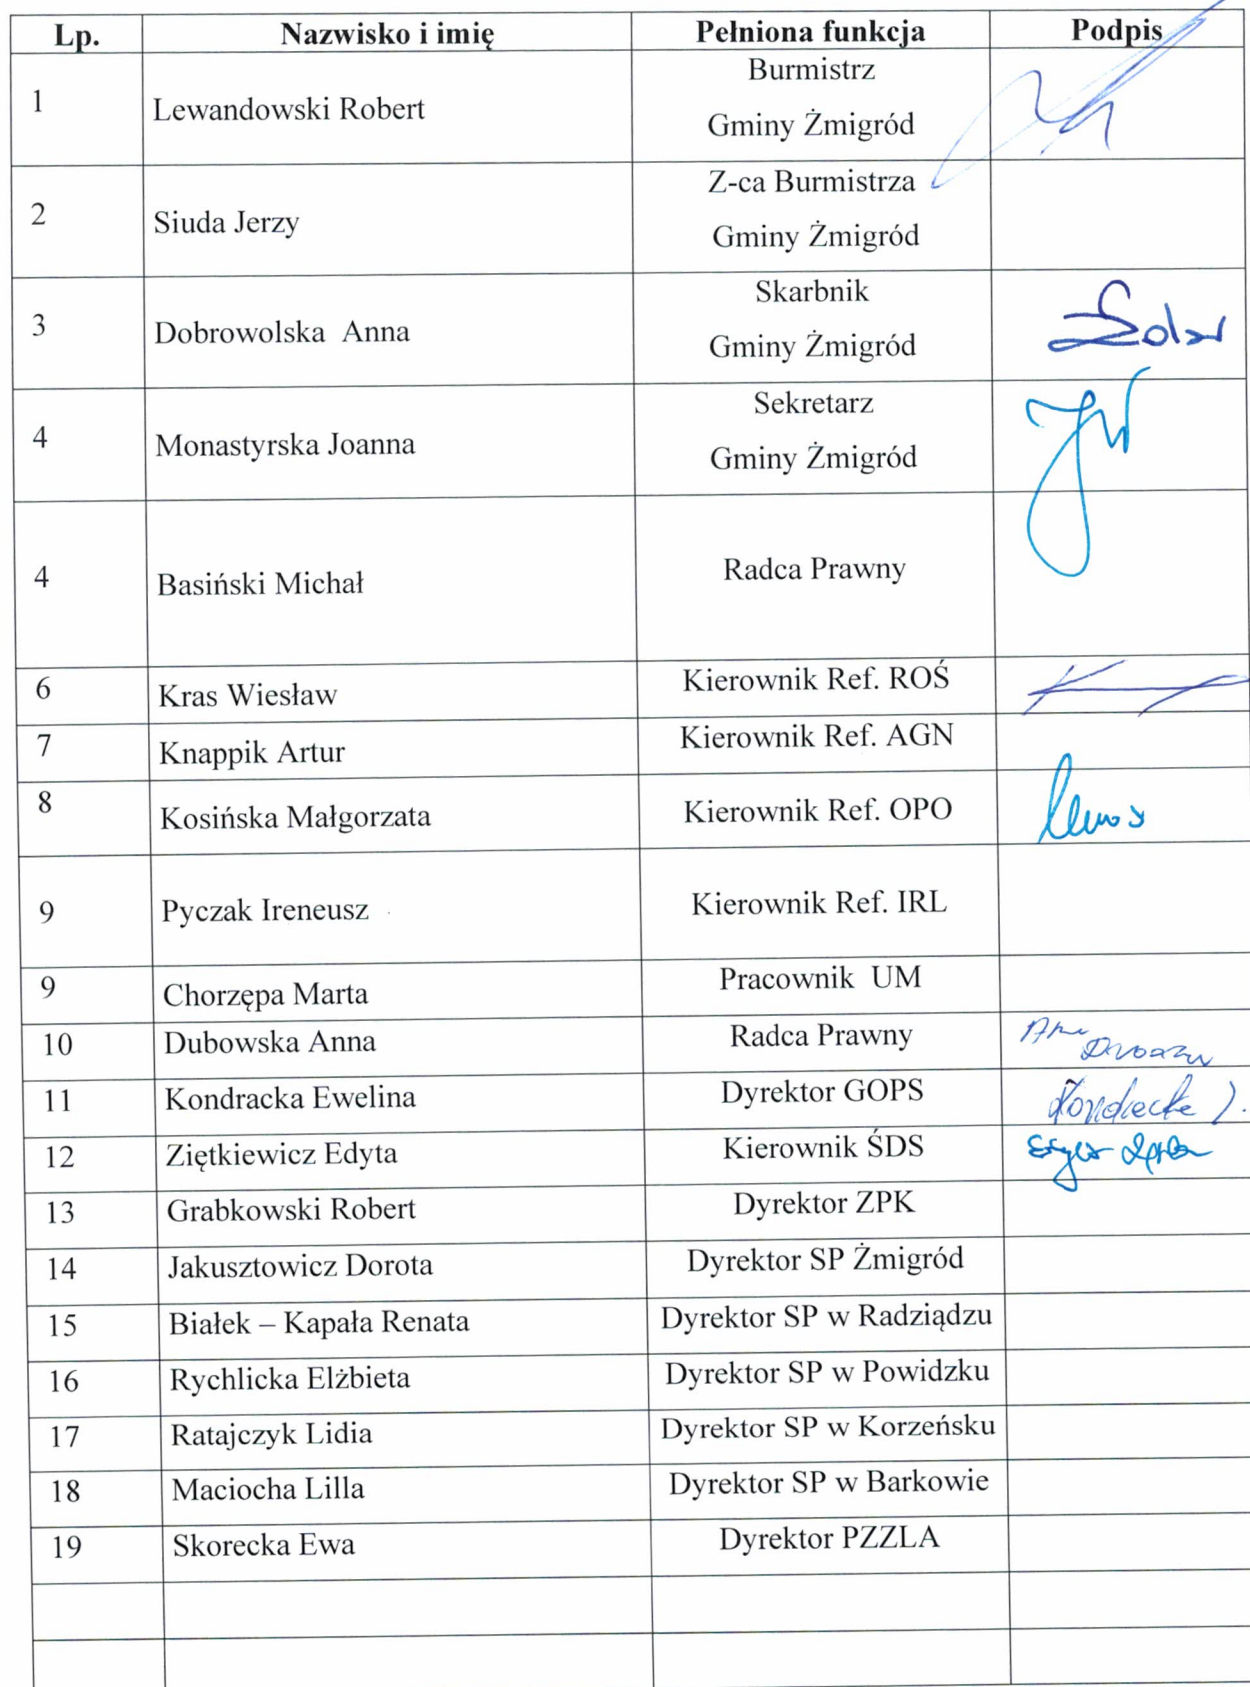 Lp. Nazwisko i imię Pełniona funkcja Podpis
1 Lewandowski Robert Burmistrz
Gminy Żmigród
2 Siuda Jerzy Z-ca Burmistrza
Gminy Żmigród
3 Dobrowolska Anna Skarbnik
Gminy Żmigród
4 Monastyrska Joanna Sekretarz
Gminy Żmigród
4 Basiński Michał Radca Prawny
6 Kras Wiesław Kierownik Ref. ROŚ
7 Knappik Artur Kierownik Ref. AGN
8 Kosińska Małgorzata Kierownik Ref. OPO
9 Pyczak Ireneusz Kierownik Ref. IRL
9 Chorzępa Marta Pracownik UM
10 Dubowska Anna Radca Prawny
11 Kondracka Ewelina Dyrektor GOPS
12 Ziętkiewicz Edyta Kierownik ŚDS
13 Grabkowski Robert Dyrektor ZPK
14 Jakusztowicz Dorota Dyrektor SP Żmigród
15 Białek – Kapała Renata Dyrektor SP w Radziądzu
16 Rychlicka Elżbieta Dyrektor SP w Powidzku
17 Ratajczyk Lidia Dyrektor SP w Korzeńsku
18 Maciocha Lilla Dyrektor SP w Barkowie
19 Skorecka Ewa Dyrektor PZZLA